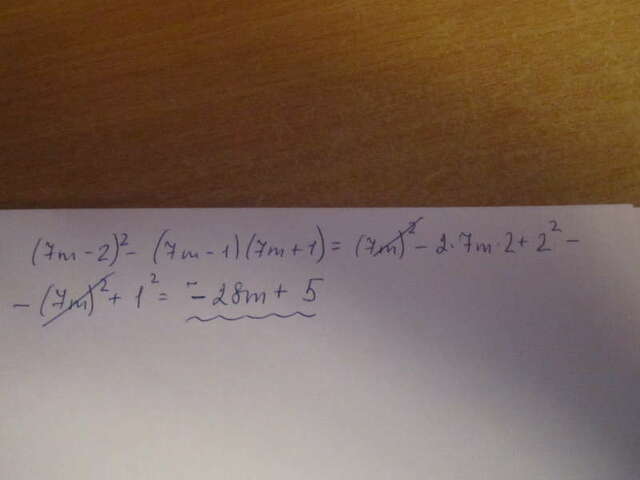 (7m-2)²- (7m-1)(7m+1) = (7m)² - 2·7m·2 + 2² -
- (7m)² + 1² = - 28m + 5